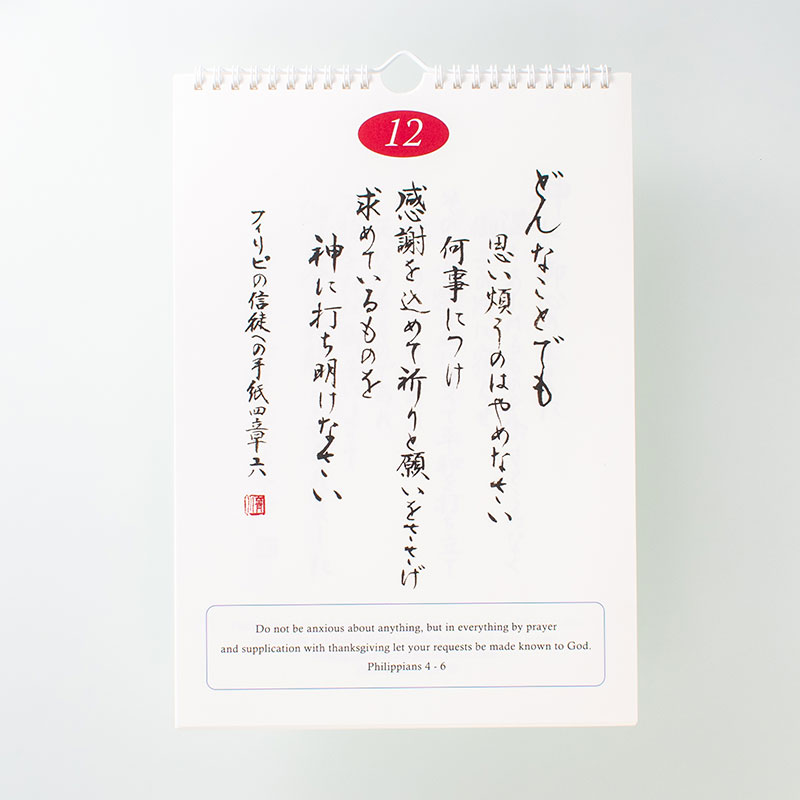 12
どんなことでも
思い煩うのはやめなさい
何事につけ
感謝を込めて祈りと願いをささげ
求めているものを
神に打ち明けなさい
フィリピの信徒への手紙四章六
Do not be anxious about anything, but in everything by prayer
and supplication with thanksgiving let your requests be made known to God.
Philippians 4 - 6